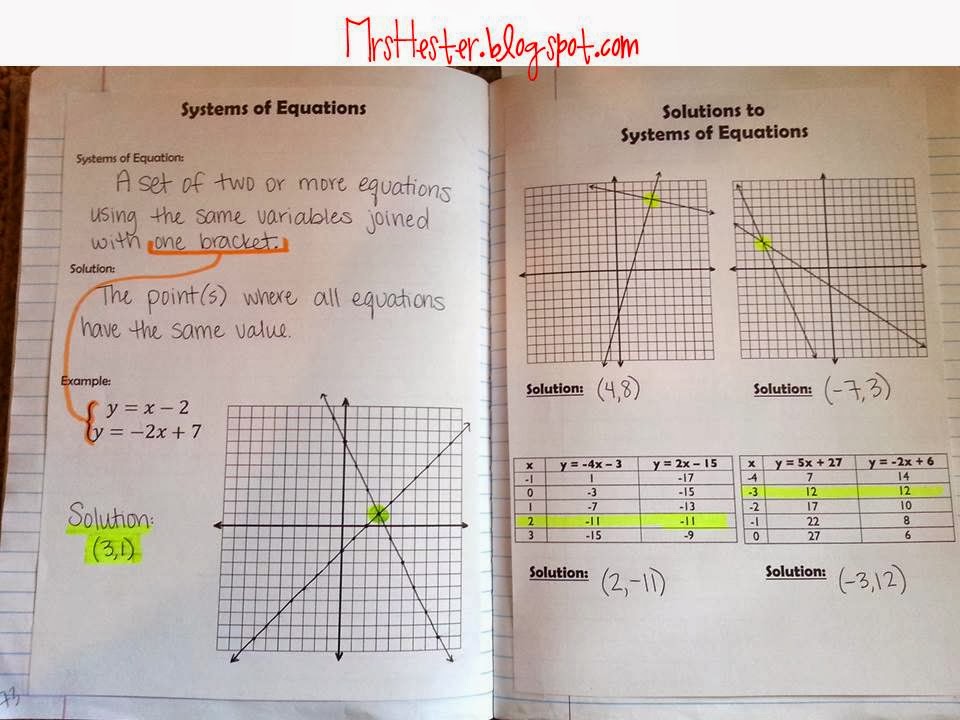 MrsHester.blogspot.com
Systems of Equations
Systems of Equation:
A set of two or more equations
using the same variables joined
with one bracket.
Solution:
The point(s) where all equations
have the same value.
Example:
y = x − 2
y = −2x + 7
Solution:
(3,1)
73
Solutions to
Systems of Equations
Solution: (4,8)
Solution: (-7,3)
x y = -4x – 3 y = 2x – 15
-1 1 -17
0 -3 -15
1 -7 -13
2 -11 -11
3 -15 -9
Solution: (2,-11)
x y = 5x + 27 y = -2x + 6
-4 7 14
-3 12 12
-2 17 10
-1 22 8
0 27 6
Solution: (-3,12)